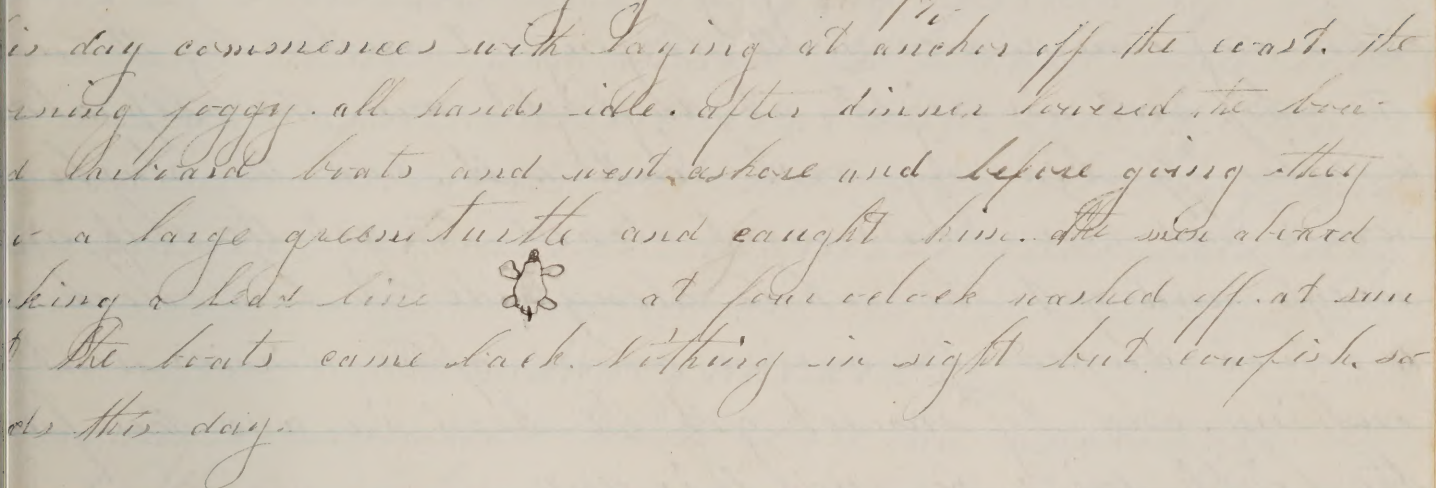 is day commences with laying at anchor off the coast. the
rning foggy. all hands idle. after dinner lowered the bow
d larboard boats and went ashore and before going they
a large green turtle and caught him. the men aboard
king a lead line at four oclock washed off. at sun
t the boats came back. Nothing in sight but cowfish. so
ds this day.